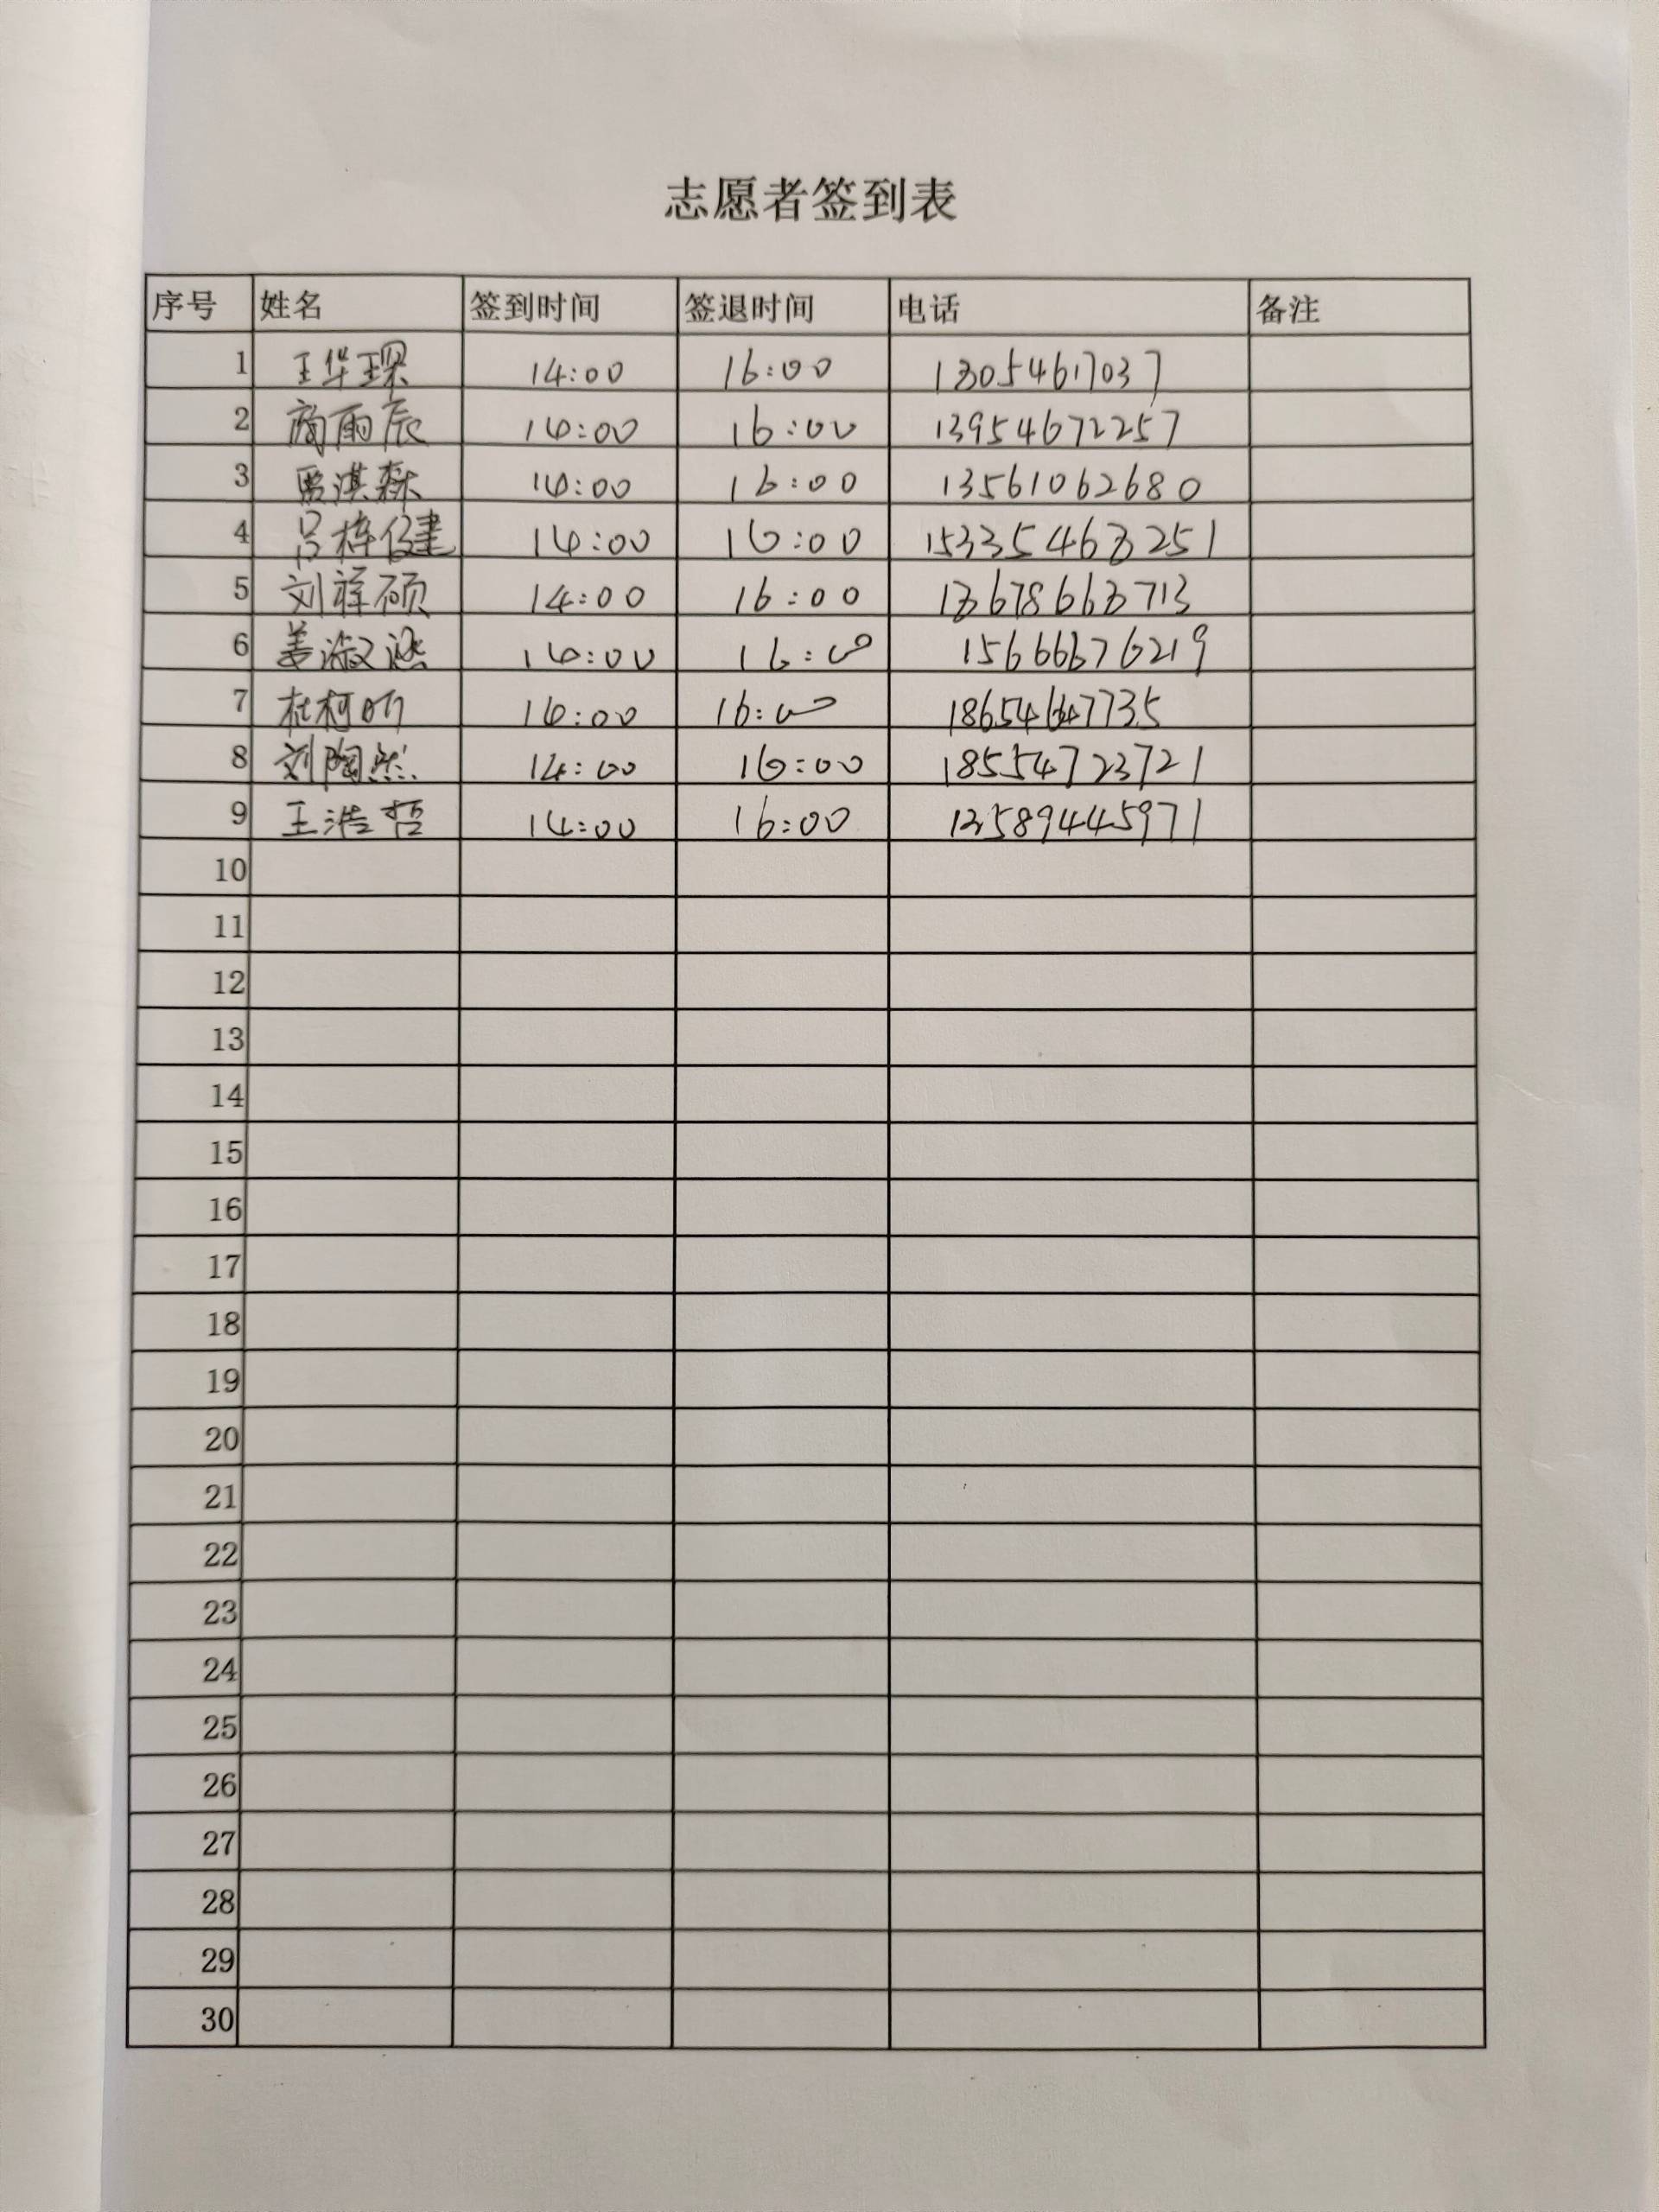 志愿者签到表
序号 姓名 签到时间 签退时间 电话 备注
1 王华琛 14:00 16:00 13054617037
2 雨辰 14:00 16:00 13954672257
3 淇森 14:00 16:00 13561062680
4 吕梓健 14:00 16:00 15335463251
5 刘祥硕 14:00 16:00 13678663713
6 姜淑涵 14:00 16:00 15666676219
7 杜柯昕 14:00 16:00
8 刘陶然 14:00 16:00 18554723721
9 王浩哲 14:00 16:00 13589445971
10
11
12
13
14
15
16
17
18
19
20
21
22
23
24
25
26
27
28
29
30